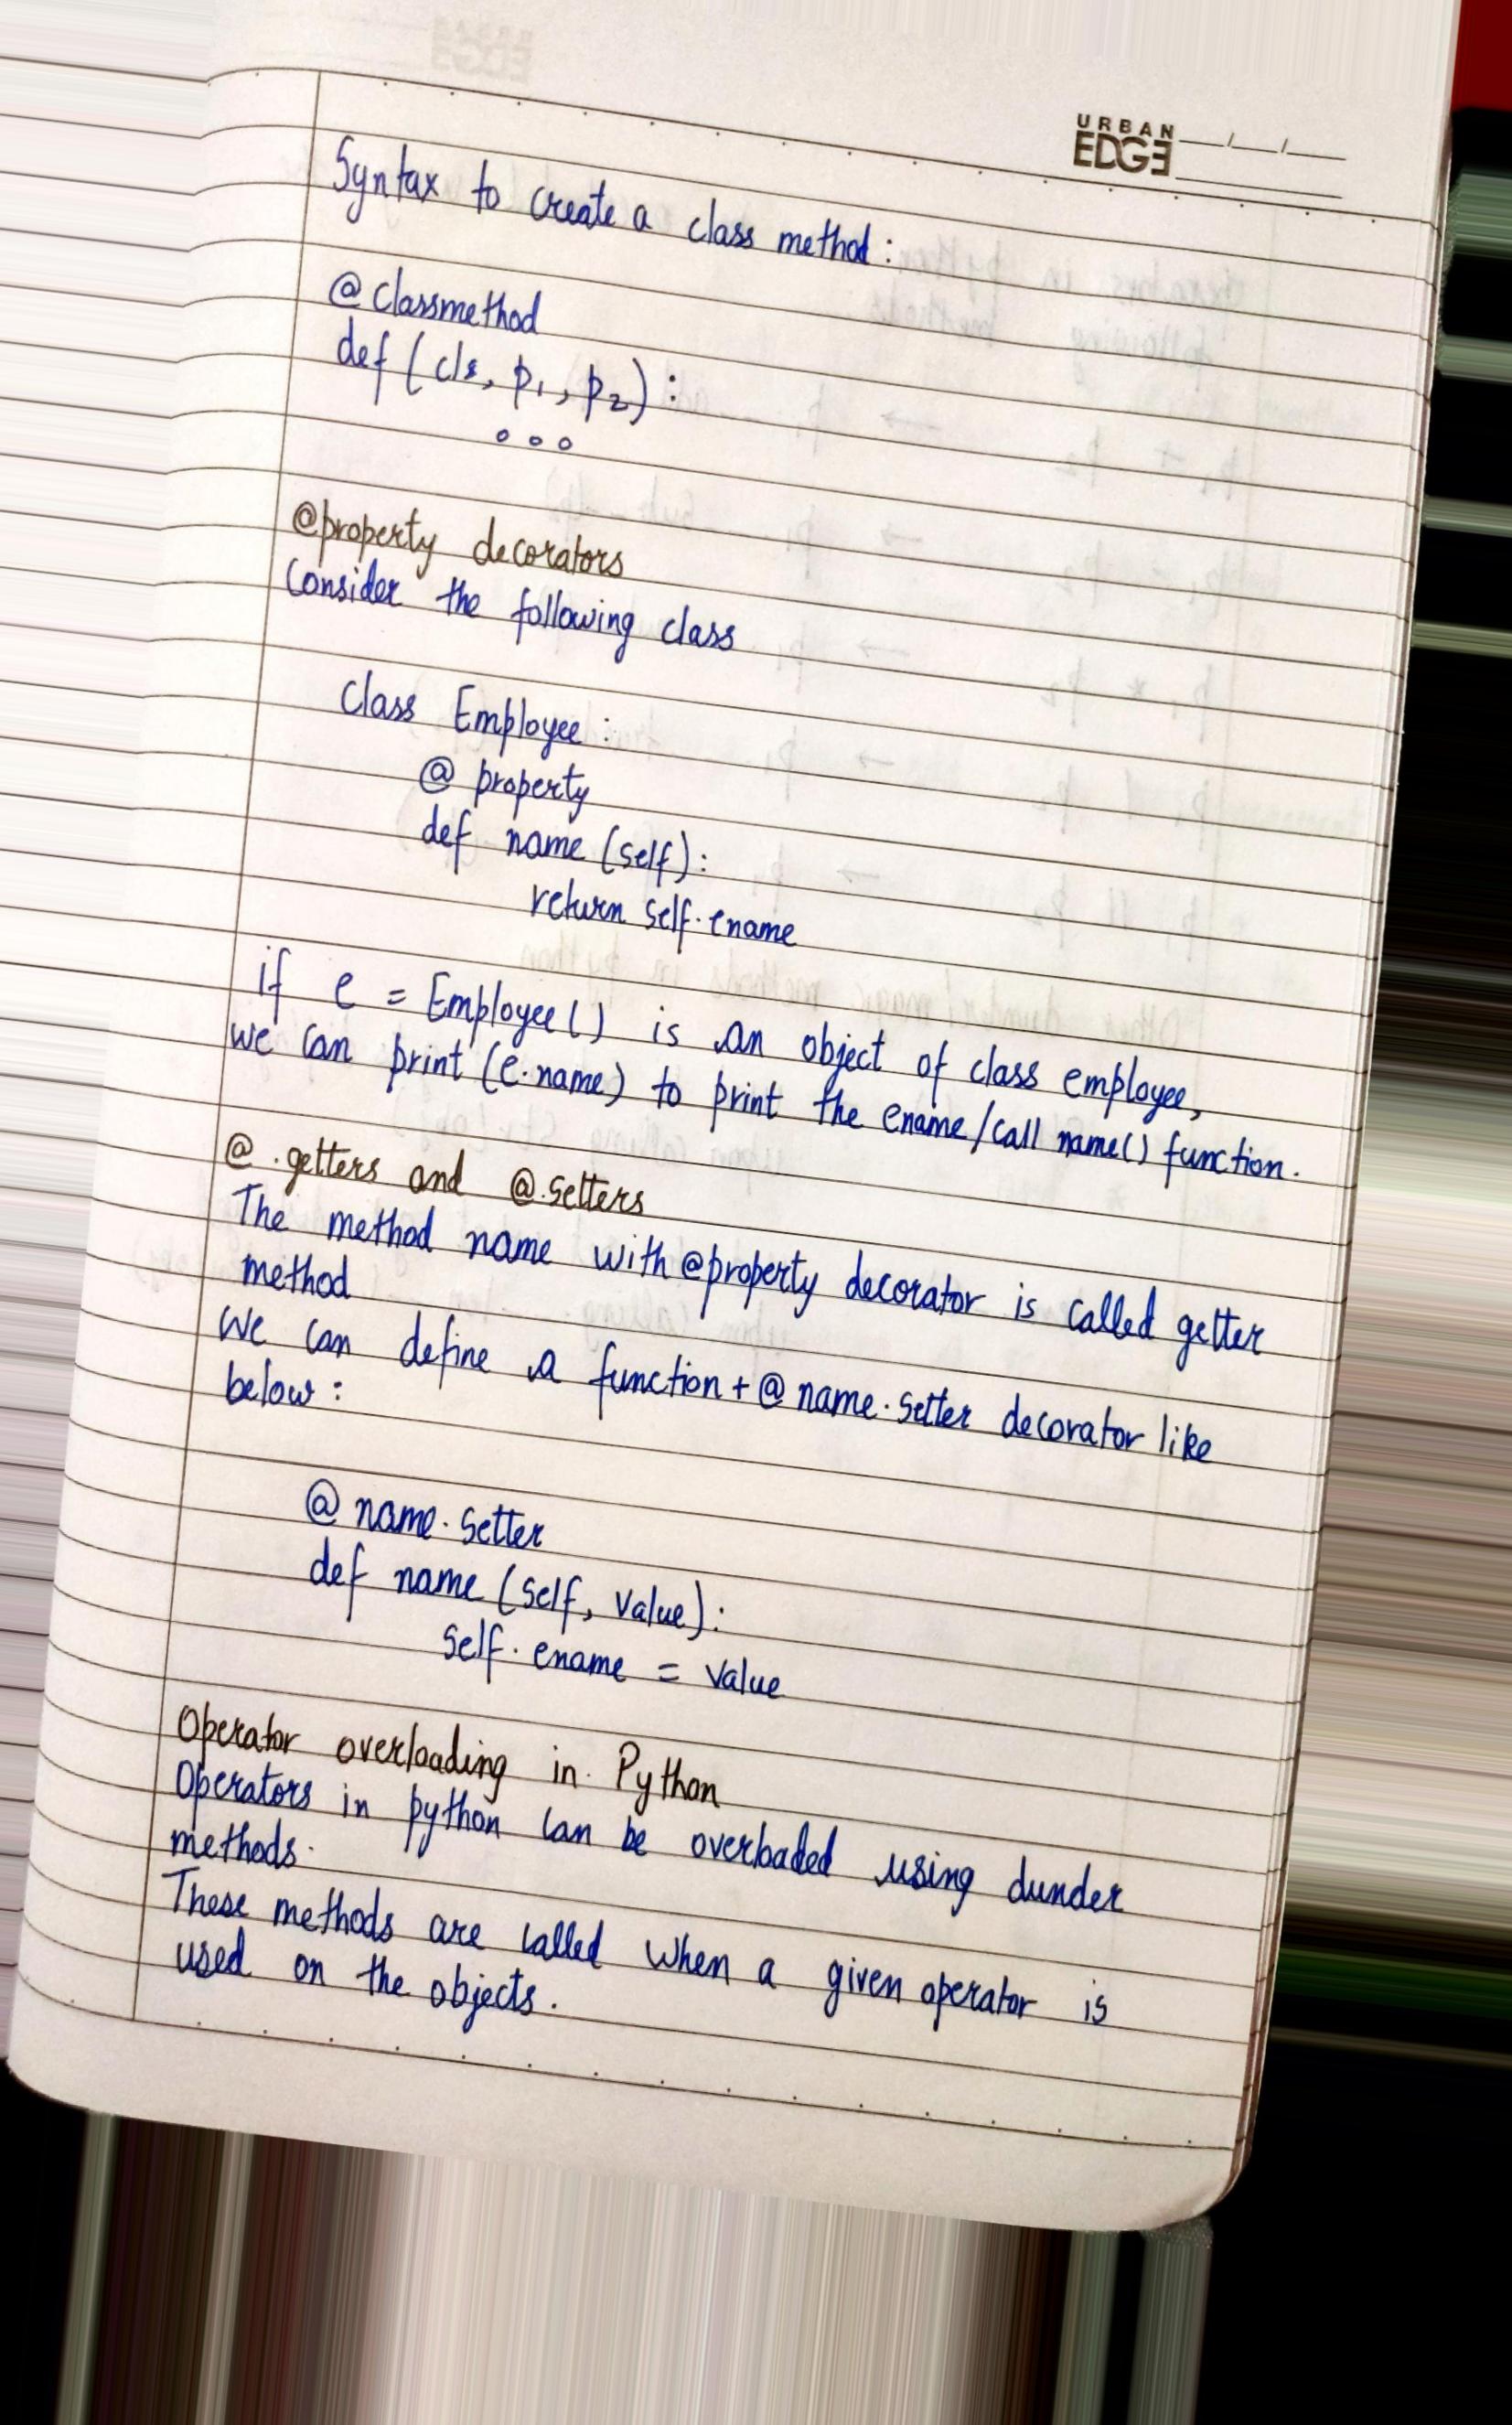 URBAN
EDGE
Syntax to create a class method:
@classmethod
def (cls, p1, p2):
ooo
@property decorators
Consider the following class
Class Employee:
@ property
def name (self):
return self.ename
if e = Employee() is an object of class employee,
we can print (e.name) to print the ename/call name() function.
@.getters and @.setters
The method name with @property decorator is called getter
method
We can define a function + @ name.setter decorator like
below:
@ name.setter
def name (self, value):
self.ename = value
Operator overloading in Python
Operators in python can be overloaded using dunder
methods.
These methods are called when a given operator is
used on the objects.